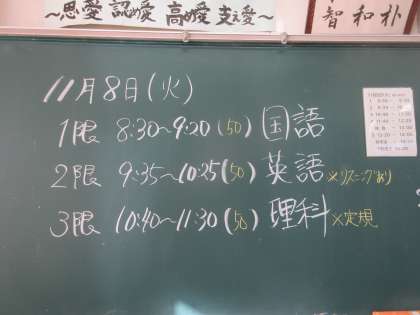 ～思愛 認め愛 高め愛 支え愛～
智和朴
11月8日(火)
1限 8:30～9:20(50) 国語
2限 9:35～10:25(50) 英語 ×リスニングあり
3限 10:40～11:30(50) 理科 ×定規